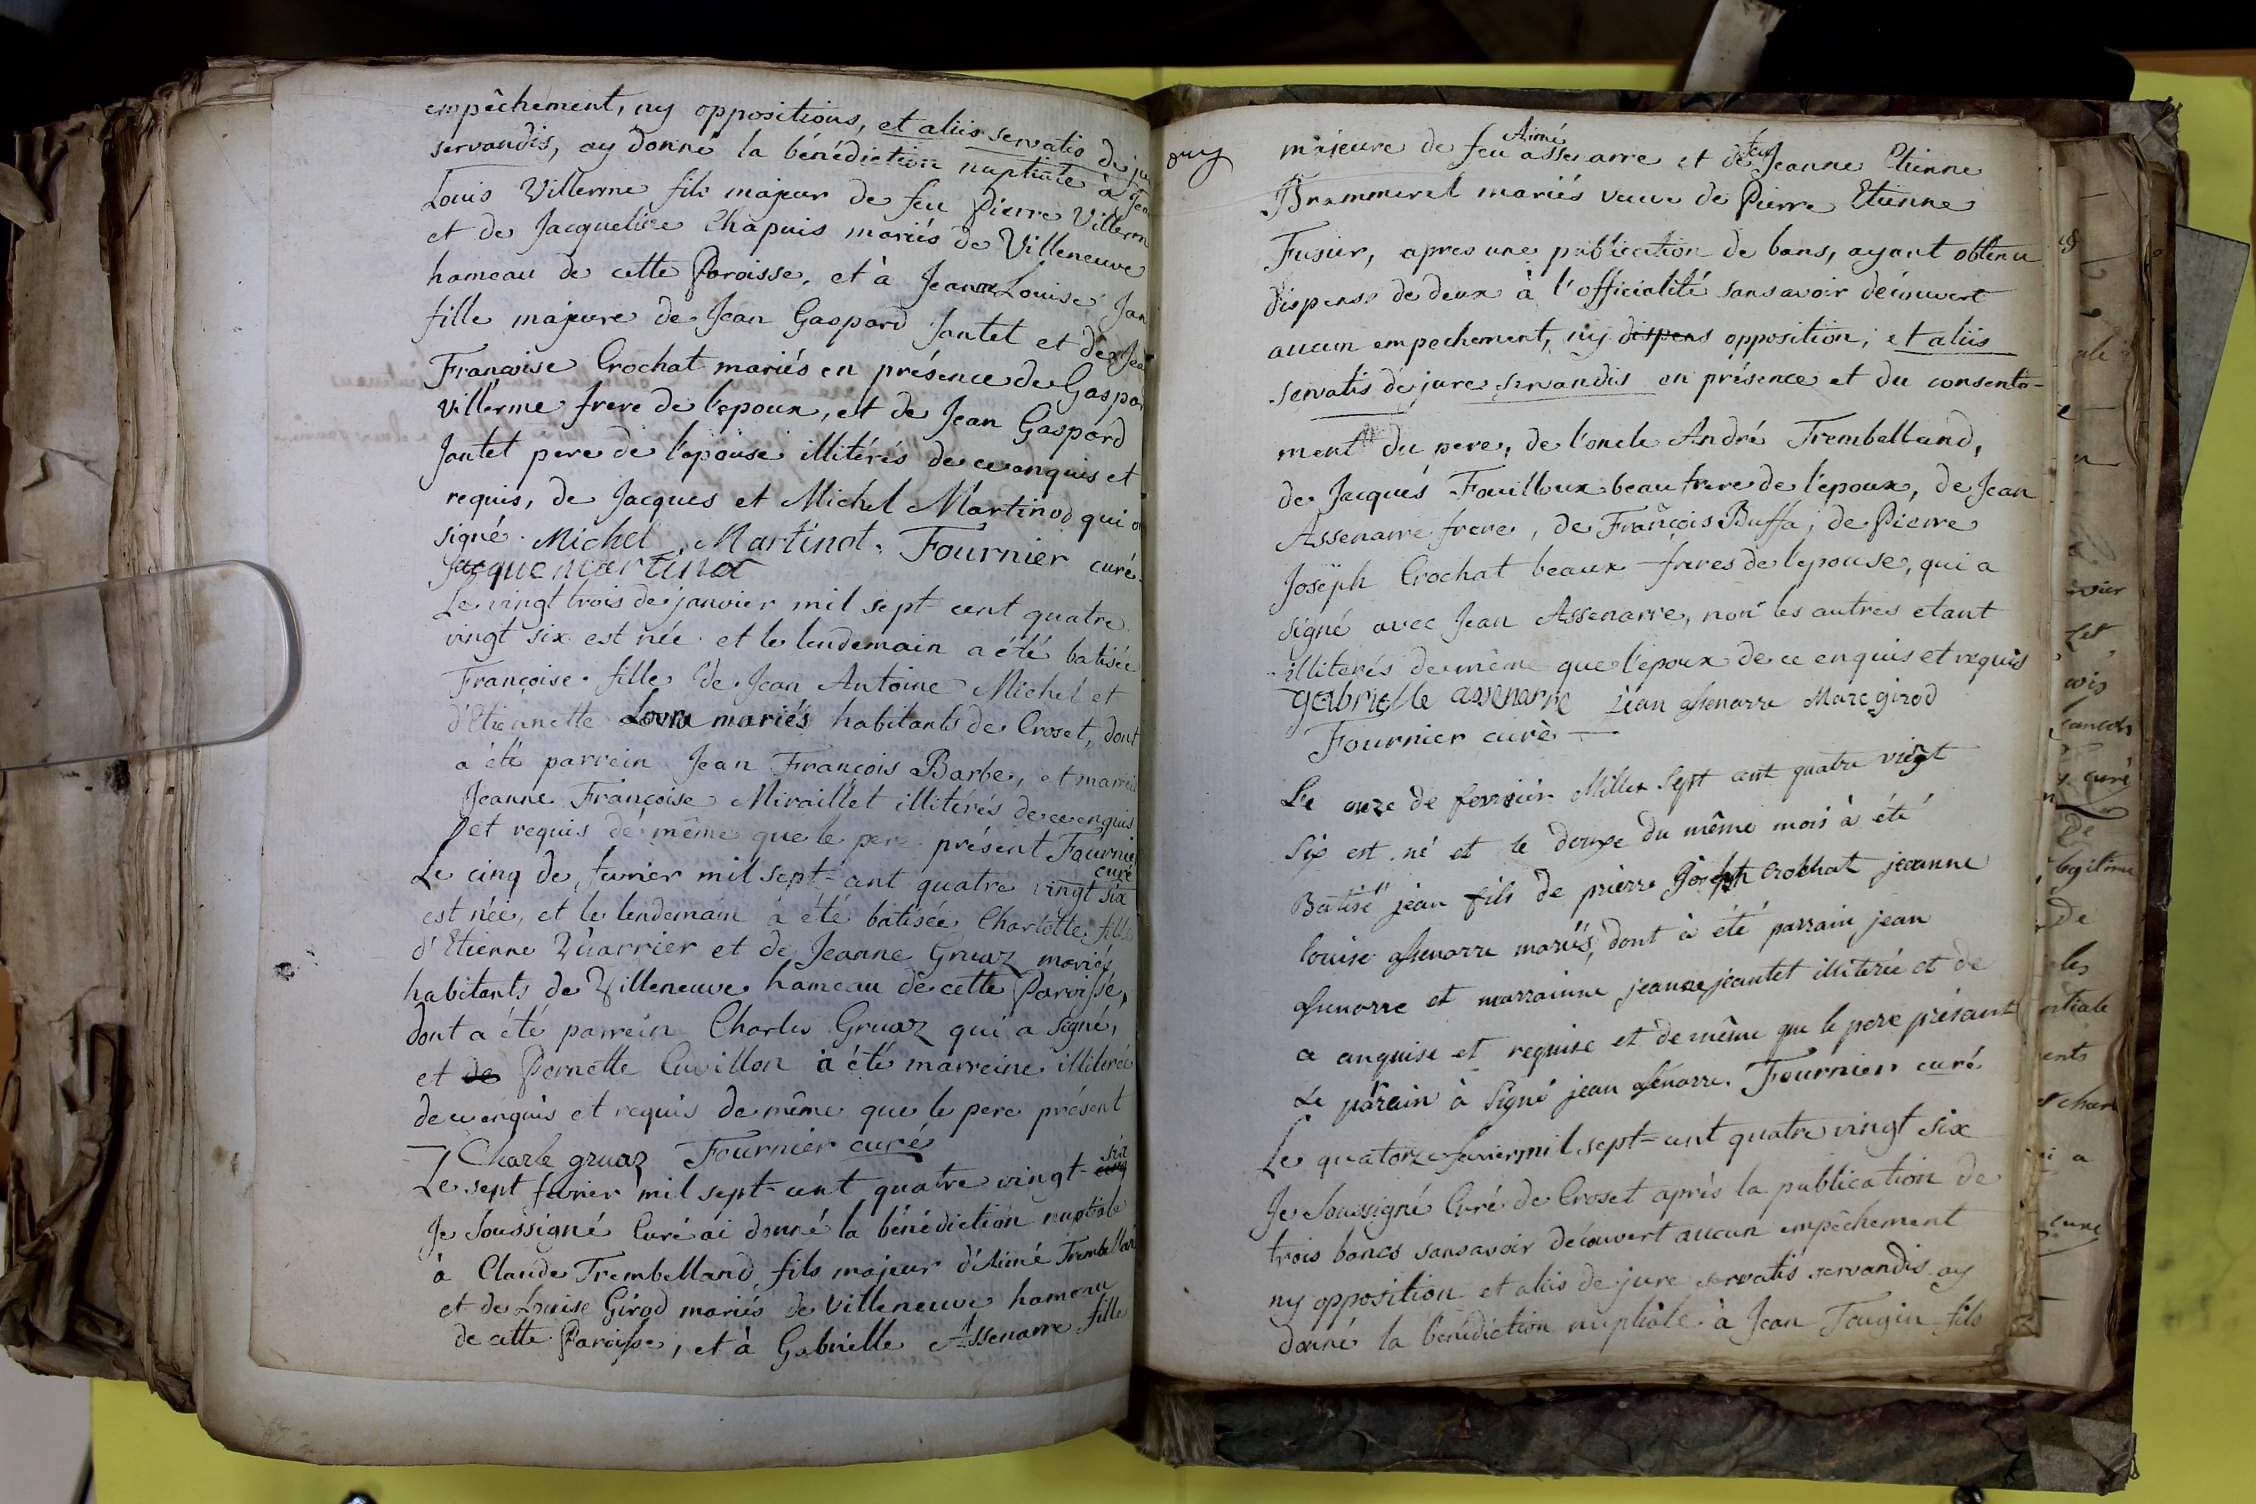 empêchement, ny oppositions, et aliis servatis de ju
servandis, ay donné la bénédiction nuptiale à Jean
Louis Villerme fils majeur de feu Pierre Villerm
et de Jacqueline Chapuis mariés de Villeneuve
hameau de cette Paroisse, et à Jeanne Louise Jan
fille majeure de Jean Gaspard Jantet et de Jea
Françoise Crochat mariés en présence de Gaspar
Villerme frere de l'epoux, et de Jean Gaspard
Jantet pere de l'epouse illitérés de ce enquis et
requis, de Jacques et Michel Martinod qui o
signé. Michel Martinot. Fournier curé.
Jacque martinat
Le vingt trois de janvier mil sept cent quatre
vingt six est née et le lendemain a été batisée
Françoise fille de Jean Antoine Michel et
d'Etiennette mariés habitants de Croset, dont
a été parrein Jean François Barbe, et marrei
Jeanne Françoise Miraillet illitérés de ce enquis
et requis de même que le pere présent Fournier
curé
Le cinq de fevrier mil sept=cent quatre vingt six
est née, et le lendemain à été batisée Charlotte fille
d'Etienne Vuarrier et de Jeanne Gruaz mariés
habitants de Villeneuve hameau de cette Paroisse,
dont a été parrein Charles Gruaz qui a signé,
et de Pernette Cuvillon à été marreine illiterée
de ce enquis et requis de même que le pere présent
Charle gruaz Fournier curé
Le sept fevrier mil sept-cent quatre vingt-cinq six
Je Soussigné Curé ai donné la bénédiction nuptiale
à Claude Trembelland, fils majeur d'Aimé Trembelland
et de Louise Girod mariés de Villeneuve hameau
de cette Paroisse, et à Gabrielle Assenarre fille
majeure de feu Aimé assenarre et de feu Jeanne Etienne
Brammerel mariés veuve de Pierre Etienne
Fusier, apres une publication de bans, ayant obtenu
dispense de deux à l'officialité sans avoir découvert
aucun empechement, ny dispens opposition, et aliis
servatis de jure servandis en présence et du consente-
ment du pere, de l'oncle André Trembelland,
de Jacques Fouilloux beau frere de l'epoux, de Jean
Assenarre frere, de François Buffa, de Pierre
Joseph Crochat beaux-freres de l'epouse, qui a
signé avec Jean Assenarre, non les autres etant
illiterés de même que l'époux de ce enquis et requis
gabrielle assenarre jean assenarre Marc girod
Fournier curè
Le onze de fevrier Mille Sept cent quatre vingt
Six est né et le douze du même mois à été
Batisé jean fils de pierre joseph Crochat jeanne
louise assenarre mariés, dont à été parrain jean
assenarre et marrainne jeanne jeantet illiterée et de
ce enquise et requise et de même que le pere présent
Le parain à Signé jean assenarre. Fournier curé
Le quatorze fevrier mil sept=cent quatre vingt six
Je Soussigné Curé de Croset après la publication de
trois bancs sans avoir découvert aucun empêchement
ny opposition et aliis de jure servatis servandis ay
donné la bénédiction nuptiale à Jean Tougin fils